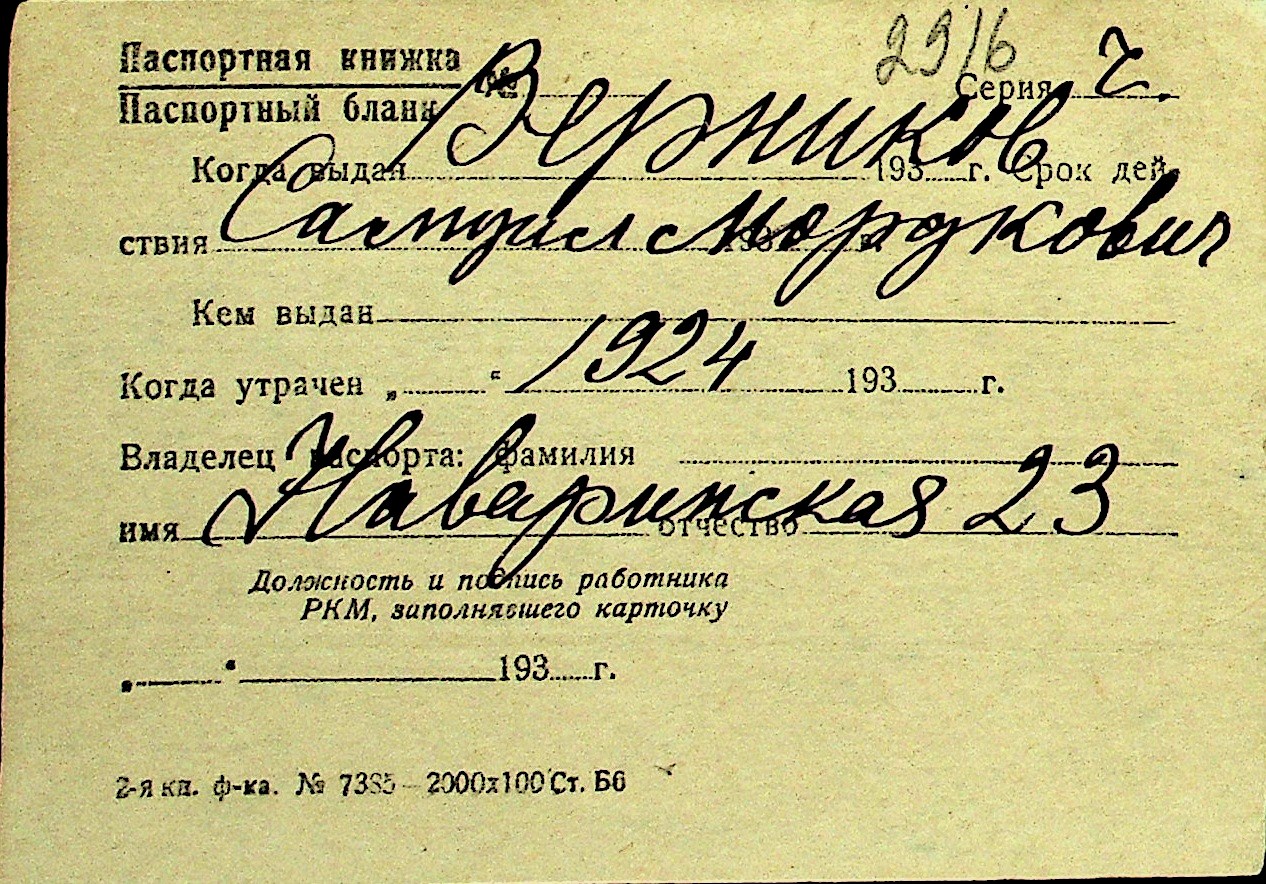 2916
Паспортная книжка № Серия ч.
Паспортный бланк
Верников
Когда выдан 193 г. Срок дей-
Самуил Мордкович
ствия 193 г.
Кем выдан
1924
Когда утрачен „ “ 193 г.
Владелец паспорта: фамилия
Наваринская 23
имя отчество
Должность и подпись работника
РКМ, заполнявшего карточку
„ “ 193 г.
2-я кн. ф-ка. № 7385—2000х100 Ст. Б6